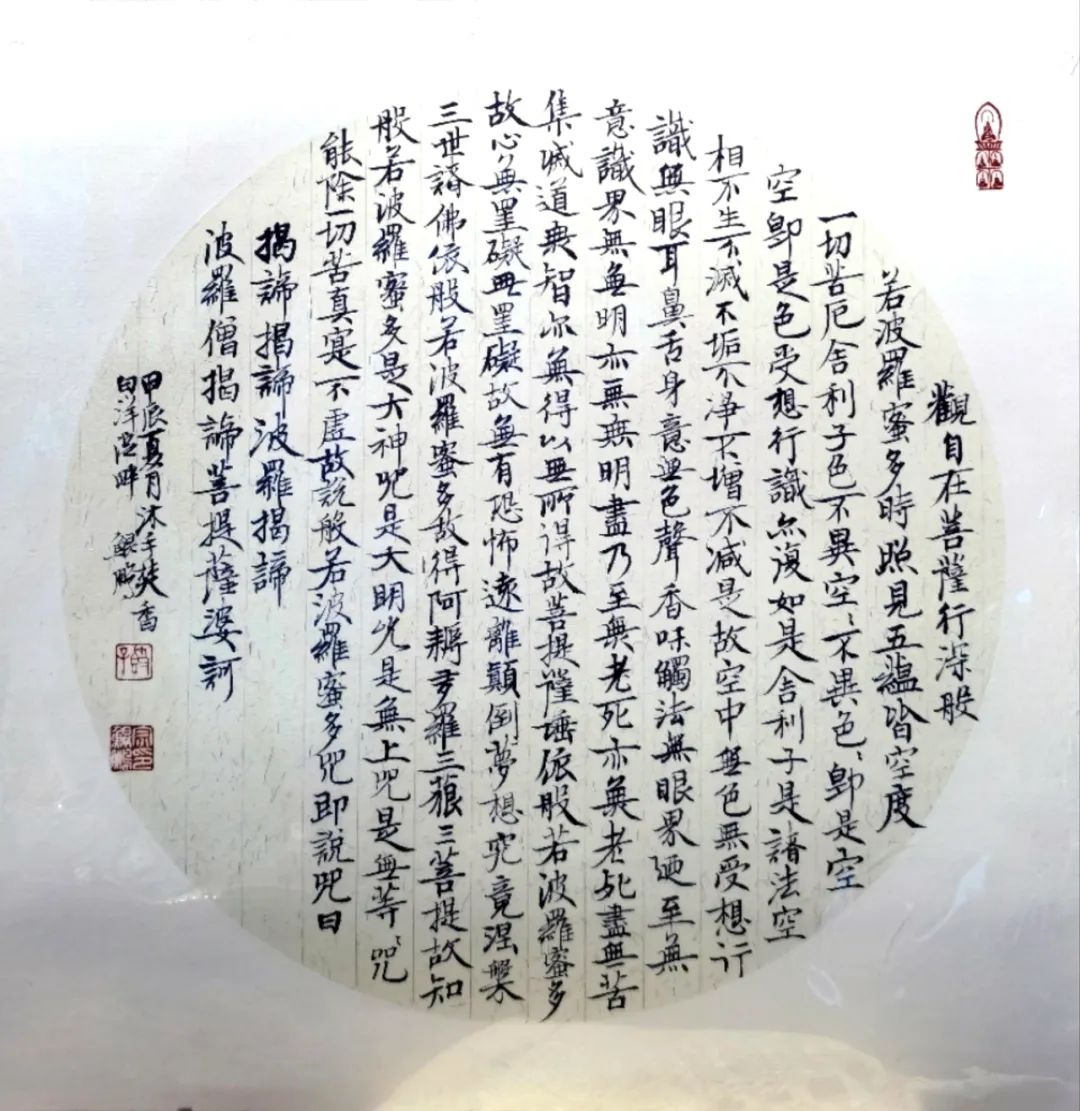 觀自在菩薩行深般
若波羅蜜多時照見五蘊皆空度
一切苦厄舍利子色不異空〻不異色〻即是空
空即是色受想行識亦復如是舍利子是諸法空
相不生不滅不垢不淨不增不减是故空中無色無受想行
識無眼耳鼻舌身意無色聲香味觸法無眼界廼至無
意識界無無明亦無無明盡乃至無老死亦無老死盡無苦
集滅道無智亦無得以無所得故菩提薩埵依般若波羅蜜多
故心無罣礙無罣礙故無有恐怖遠離顛倒夢想究竟涅槃
三世諸佛依般若波羅蜜多故得阿耨多羅三藐三菩提故知
般若波羅蜜多是大神咒是大明咒是無上咒是無等〻咒
能除一切苦真寔不虛故說般若波羅蜜多咒即說咒曰
揭諦揭諦波羅揭諦
波羅僧揭諦菩提薩婆訶
甲辰夏月沐手焚香
白洋淀畔